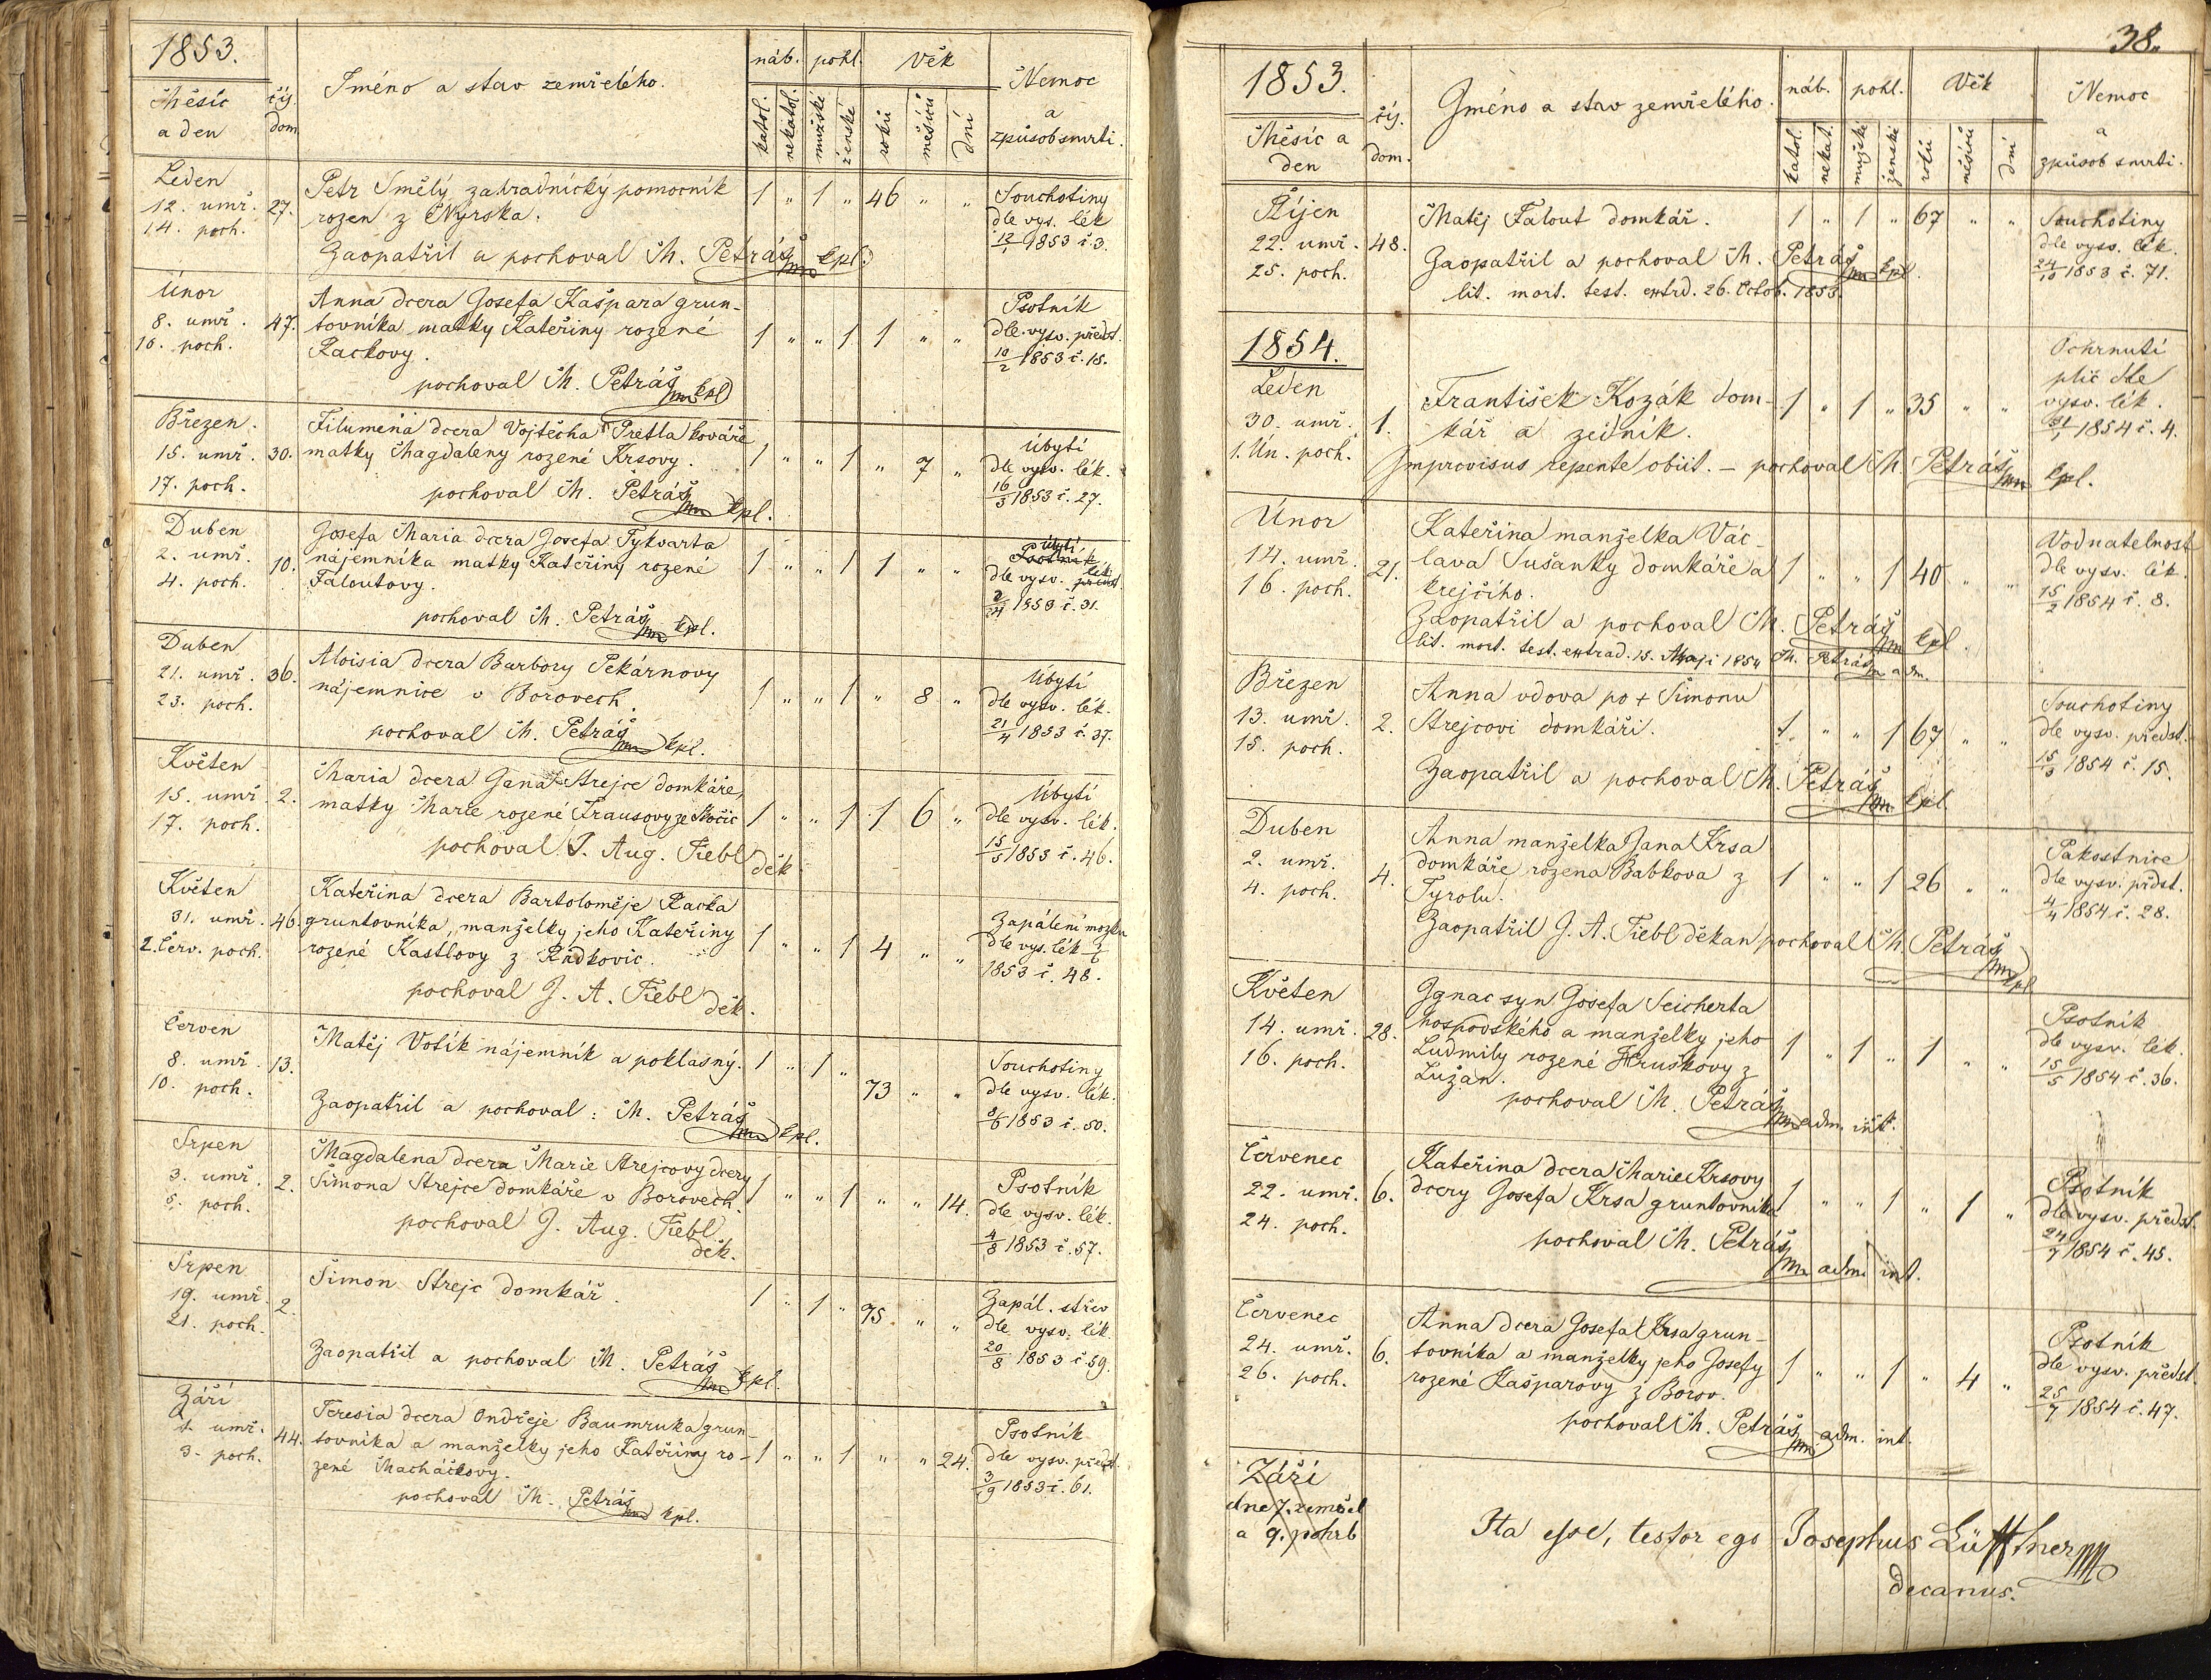 1853.
Měsíc a den
čís. dom.
Jméno a stav zemřelého.
náb. pohl. Věk
katol. nekatol. mužské ženské roků měsíců dní
Nemoc a způsob smrti.
Leden
12. umř. 27.
14. poch.
Petr Smělý zahradnický pomocník
rozen z Nýrska.
Zaopatřil a pochoval M. Petráš mp kpl.
1 " 1 " 46 " "
Souchotiny
dle vys. lék
13/1 1853 č. 3.
Únor
8. umř. 47.
10. poch.
Anna dcera Josefa Kašpara grun-
tovníka matky Kateřiny rozené
Rackovy.
pochoval M. Petráš mp kpl
1 " " 1 1 " "
Psotník
dle vysv. předst.
10/2 1853 č. 15.
Březen.
15. umř. 30.
17. poch.
Filumena dcera Vojtěcha Pretla kováře
matky Magdaleny rozené Krsovy.
pochoval M. Petráš mp kpl.
1 " " 1 " 7 "
Úbytí
dle vysv. lék.
16/3 1853 č. 27.
Duben
2. umř. 10.
4. poch.
Josefa Maria dcera Josefa Tykvarta
nájemníka matky Kateřiny rozené
Faloutovy.
pochoval M. Petráš mp kpl.
1 " " 1 1 " "
úbytí
Psotník
dle vysv. předst. lék
1853 č. 31.
Duben
21. umř. 36.
23. poch.
Aloisia dcera Barbory Pekárnovy
nájemnice v Borovech.
pochoval M. Petráš mp kpl.
1 " " 1 " 8 "
Úbytí
dle vysv. lék.
21/4 1853 č. 37.
Květen
15. umř. 2.
17. poch.
Maria dcera Jana Strejce domkáře,
matky Marie rozené Frausovy ze Skočic
pochoval J. Aug. Fiebl děk
1 " " 1 1 6 "
Úbytí
dle vysv. lék.
15/5 1853 č. 46.
Květen
31. umř. 46.
2. Červ. poch.
Kateřina dcera Bartoloměje Racka
gruntovníka, manželky jeho Kateřiny
rozené Kastlovy z Radkovic.
pochoval J. A. Fiebl děk.
1 " " 1 4 " "
Zapálení mozku
dle vys. lék 1/6
1853 č. 48.
Červen
8. umř. 13.
10. poch.
Matěj Votík nájemník a poklasný.
Zaopatřil a pochoval: M. Petráš mp kpl.
1 " 1 " 73 " "
Souchotiny
dle vysv. lék.
8/6 1853 č. 50.
Srpen
3. umř. 2.
5. poch.
Magdalena dcera Marie Strejcovy dcery
Šimona Strejce domkáře v Borovech.
pochoval J. Aug. Fiebl
děk.
1 " " 1 " " 14.
Psotník
dle vysv. lék.
4/8 1853 č. 57.
Srpen
19. umř. 2.
21. poch.
Šimon Strejc domkář.
Zaopatřil a pochoval M. Petráš mp kpl.
1 " 1 " 75. " "
Zapál. střev
dle vysv. lék.
20/8 1853 č. 59.
Září
1. umř. 44.
3. poch.
Teresia dcera Ondřeje Baumruka grun-
tovníka a manželky jeho Kateřiny ro-
zené Macháčkovy.
pochoval M. Petráš mp kpl.
1 " " 1 " " 24.
Psotník
dle vysv. předst.
3/9 1853 č. 61.
38.
1853.
Měsíc a den
čís. dom.
Gméno a stav zemřelého.
náb. pohl. Věk
katol. nekat. mužské ženské roků měsíců dní
Nemoc a způsob smrti.
Říjen
22. umř. 48.
25. poch.
Matěj Falout domkář.
Zaopatřil a pochoval M. Petráš mp kpl.
lit. mort. test. extrd. 26. Octob. 1853.
1 " 1 " 67 " "
Souchotiny
dle vysv. lék.
24/10 1853 č. 71.
1854.
Leden
30. umř. 1.
1. Ún. poch.
František Kozák dom-
kář a zedník.
Improvisus repente obiit. – pochoval M. Petráš mp kpl.
1 " 1 " 35 " "
Ochrnutí
plic dle
vysv. lék.
31/1 1854 č. 4.
Únor
14. umř. 21.
16. poch.
Kateřina manželka Vác
lava Sušanky domkáře a
krejčího.
Zaopatřil a pochoval M. Petráš mp kpl.
lit. mort. test. extrad. 15. Maji 1854 M. Petráš mp adm.
1 " " 1 40 " "
Vodnatelnost
dle vysv. lék.
15/2 1854 č. 8.
Březen
13. umř. 2.
15. poch.
Anna vdova po + Šimonu
Strejcovi domkáři.
Zaopatřil a pochoval M. Petráš mp kpl
1. " " 1 67 " "
Souchotiny
dle vysv. předst.
15/3 1854 č. 15.
Duben
2. umř. 4.
4. poch.
Anna manželka Jana Krsa
domkáře rozena Babkova z
Tyrolu.
Zaopatřil J. A. Fiebl děkan pochoval M. Petráš mp kpl
1 " " 1 26 " "
Pakostnice
dle vysv. předst.
4/4 1854 č. 28.
Květen
14. umř. 28.
16. poch.
Ignac syn Josefa Seicherta
hospodského a manželky jeho
Ludmily rozené Hruškovy z
Lužan.
pochoval M. Petráš mp adm. int.
1 " 1 " 1 " "
Psotník
dle vysv. lék.
15/5 1854 č. 36.
Červenec
22. umř. 6.
24. poch.
Kateřina dcera Marie Krsovy
dcery Josefa Krsa gruntovníka
pochoval M. Petráš mp adm. int.
1 " " 1 " 1 "
Psotník
dle vysv. předst.
24/7 1854 č. 45.
Červenec
24. umř. 6.
26. poch.
Anna dcera Josefa Krsa grun-
tovníka a manželky jeho Josefy
rozené Kašparovy z Borov.
pochoval M. Petráš mp adm. int.
1 " " 1 " 4 "
Psotník
dle vysv. předst.
25/7 1854 č. 47.
Září
dne 7. zemřel
a 9. pohřb
Ita esse, testor ego Josephus Lüfftner mp
decanus.